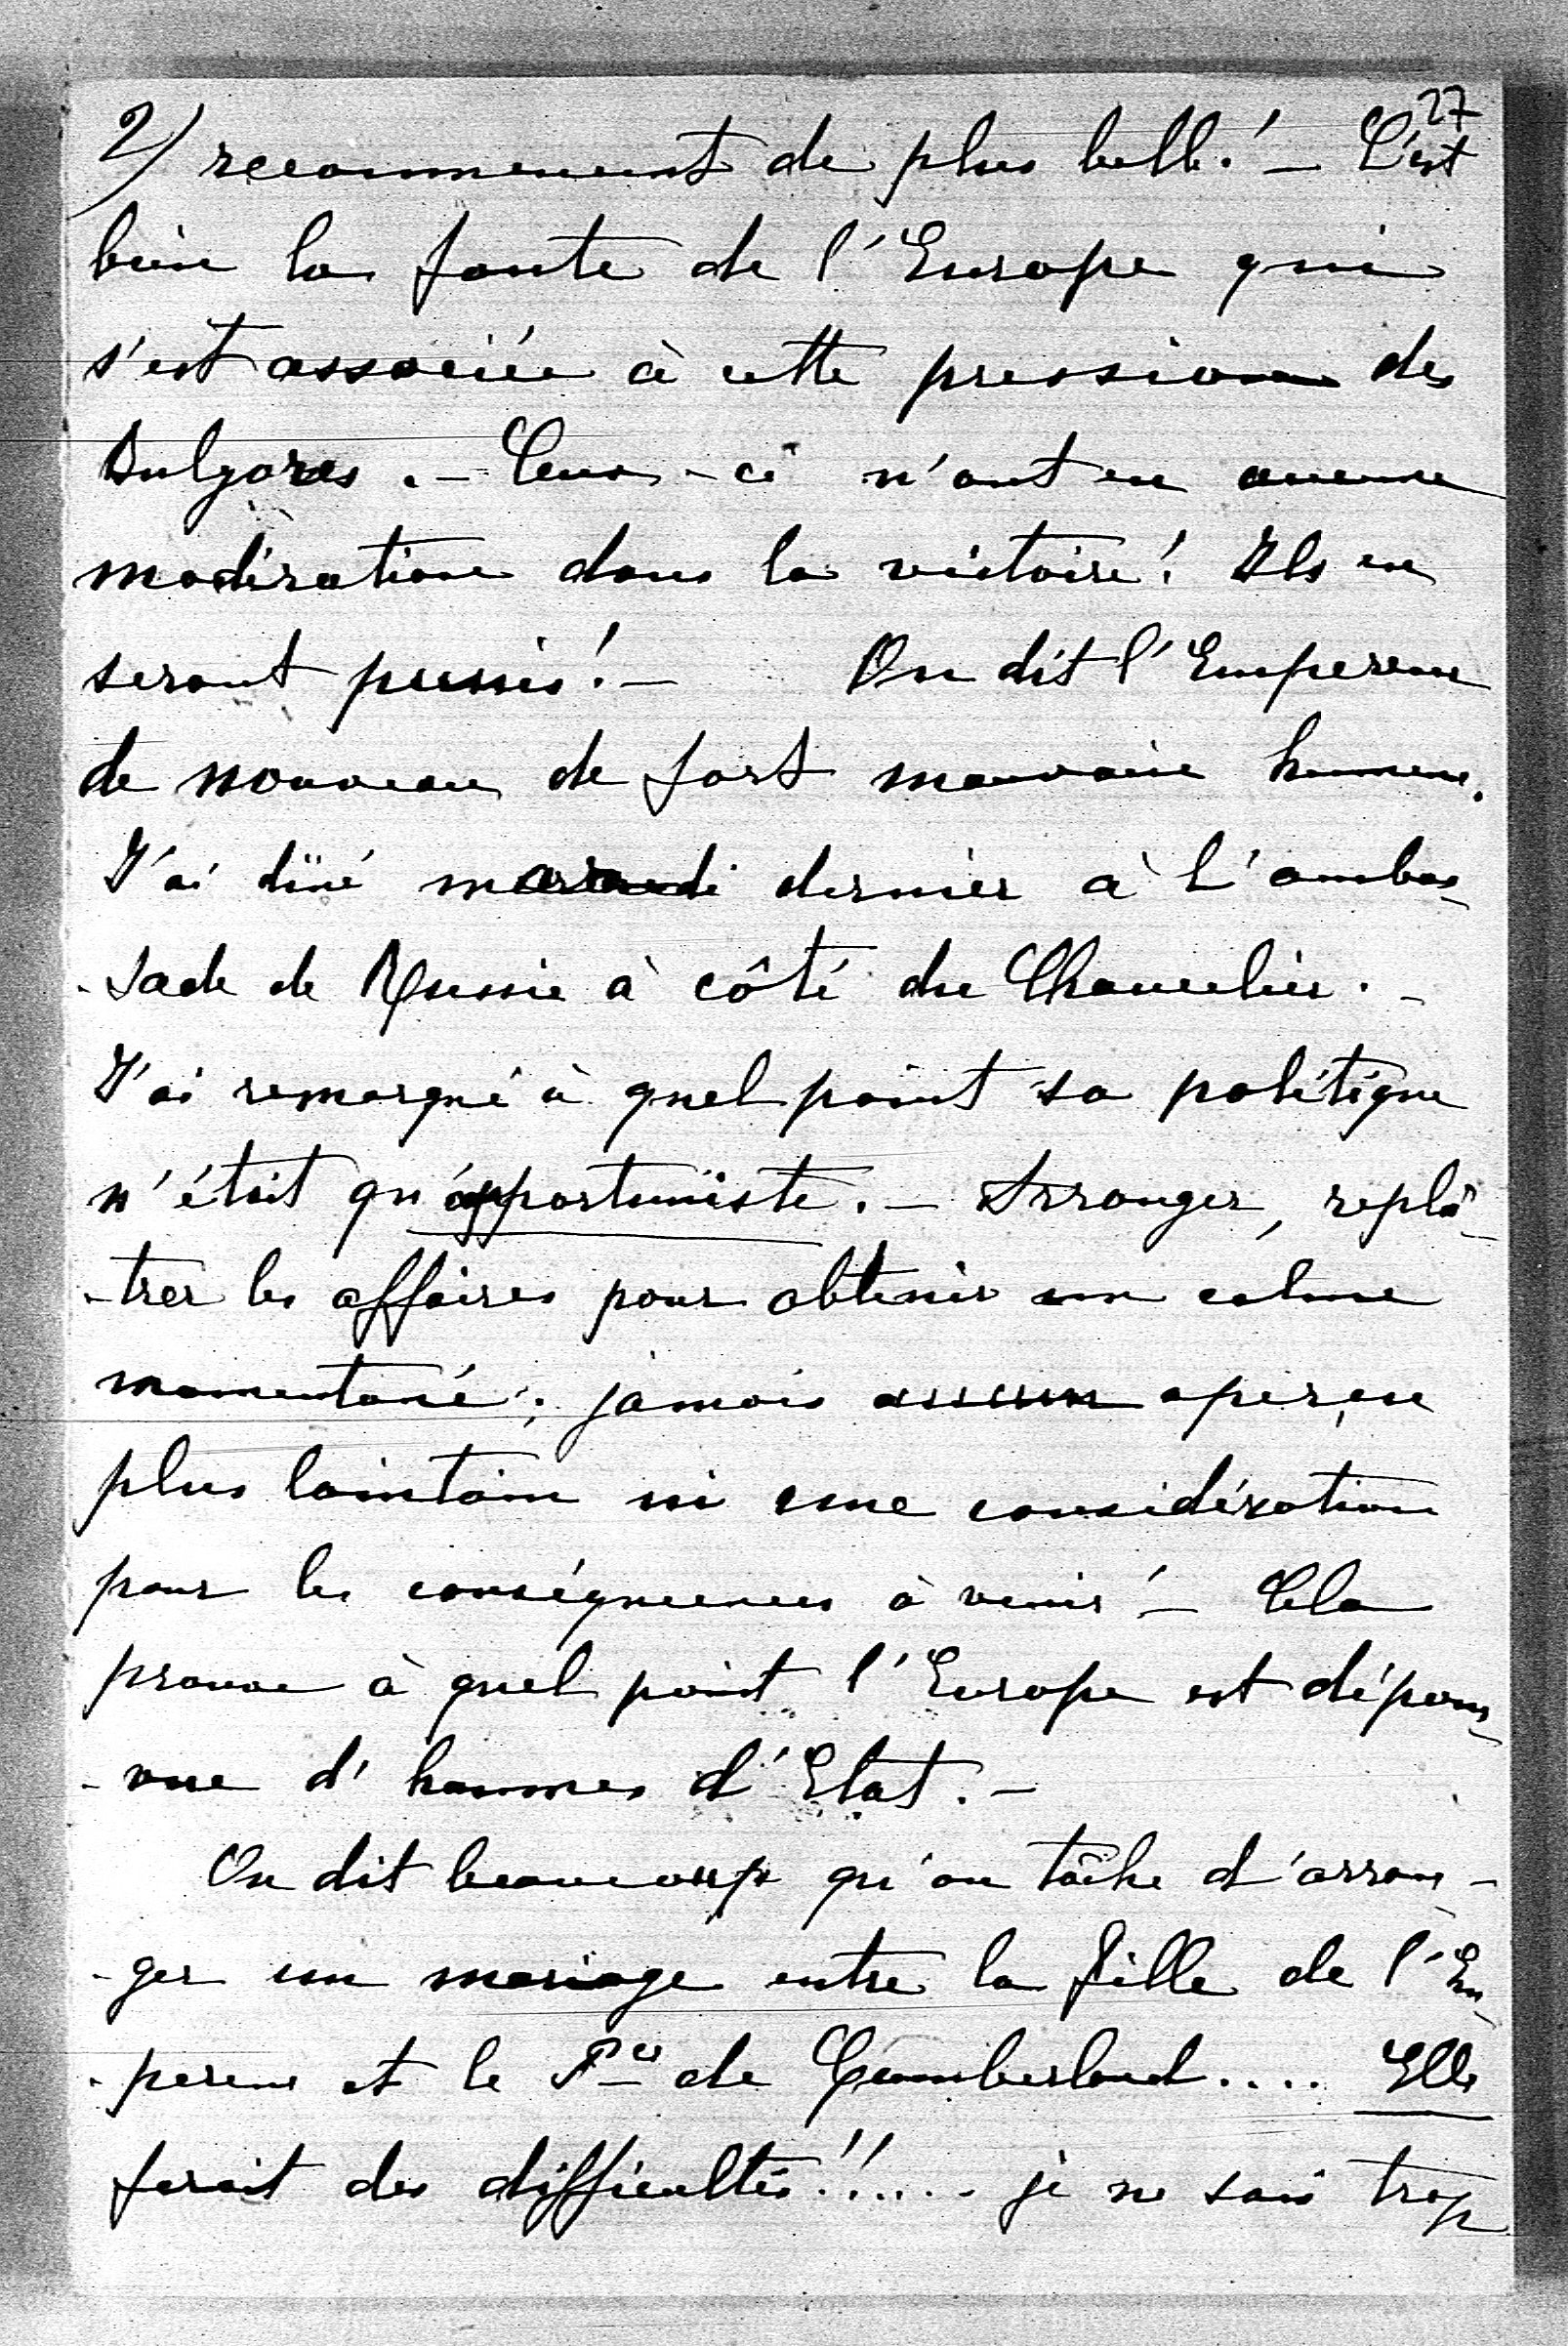 27
2/ recommencent de plus belle! – C'est
bien la faute de l'Europe qui
s'est associée à cette pression des
Bulgares. – Ceux-ci n'ont eu aucune
modération dans la victoire! Ils en
seront punis! – On dit l'Empereur
de nouveau de fort mauvaise humeur.
J'ai dîné mardi dernier à l'ambas-
-sade de Russie à côté du Chancelier. –
J'ai remarqué à quel point sa politique
n'était qu'opportuniste. – Arranger, replâ-
-trer les affaires pour obtenir un calme
momentané; jamais aucun aperçu
plus lointain ni une considération
pour les conséquences à venir! – Cela
prouve à quel point l'Europe est dépour-
-vue d'hommes d'Etat. –
On dit beaucoup qu'on tâche d'arran-
-ger un mariage entre la fille de l'Em-
-pereur et le Pce de Cumberland.... Elle
ferait des difficultés!!..... je ne sais trop